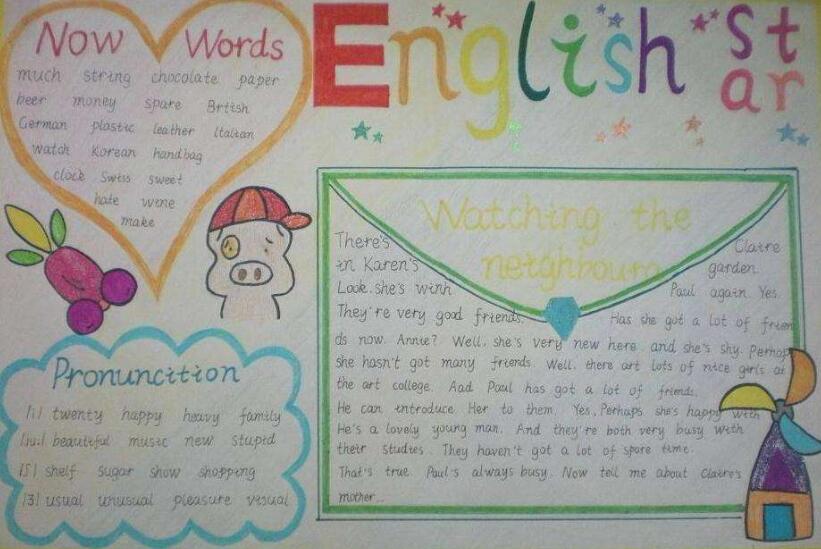 English Star
Now Words
much string chocolate paper
beer money spare Brtish
German plastic leather Italian
watch Korean handbag
clock Swiss sweet
hate wine
make
Pronuncition
/i/ twenty happy heavy family
/ju:/ beautiful music new stupid
/ʃ/ shelf sugar show shopping
/ʒ/ usual unusual pleasure visual
Watching the
neighbours
There's Claire
in Karen's garden.
Look. she's winh Paul again. Yes.
They're very good friends. Has she got a lot of frien
ds now. Annie? Well, she's very new here and she's shy. Perhap
she hasn't got many friends. Well. there art lots of nice girls at
the art college. Aad Paul has got a lot of friends.
He can introduce Her to them. Yes, Perhaps she's happy with
He's a lovely young man. And they're both very busy with
their studies. They haven't got a lot of spare time.
That's true. Paul's always busy. Now tell me about Claire's
mother...